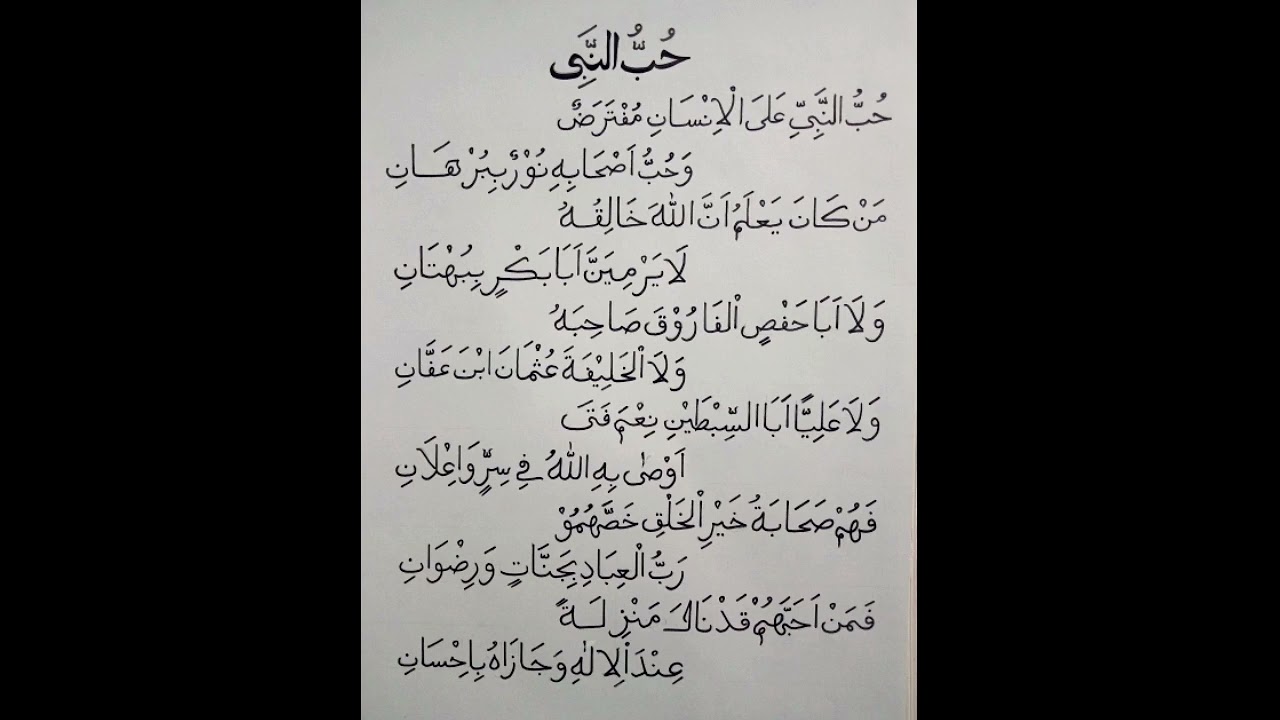 حُبُّ النَّبِي
حُبُّ النَّبِيِّ عَلَى الْاِنْسَانِ مُفْتَرَضٌ
وَحُبُّ اَصْحَابِهِ نُوْرٌ بِبُرْهَانِ
مَنْ كَانَ يَعْلَمُ اَنَّ اللّٰهَ خَالِقُهُ
لَا يَرْمِيَنَّ اَبَا بَكْرٍ بِبُهْتَانِ
وَلَا اَبَا حَفْصٍ الْفَارُوْقَ صَاحِبَهُ
وَلَا الْخَلِيْفَةَ عُثْمَانَ ابْنَ عَفَّانِ
وَلَا عَلِيًّا اَبَا السِّبْطَيْنِ نِعْمَ فَتَى
اَوْصٰى بِهِ اللّٰهُ فِي سِرٍّ وَاِعْلَانِ
فَهُمْ صَحَابَةُ خَيْرِ الْخَلْقِ خَصَّهُمُوْ
رَبُّ الْعِبَادِ بِجَنَّاتٍ وَرِضْوَانِ
فَمَنْ اَحَبَّهُمْ قَدْ نَالَ مَنْزِلَةً
عِنْدَ الْاِلٰهِ وَجَازَاهُ بِاِحْسَانِ